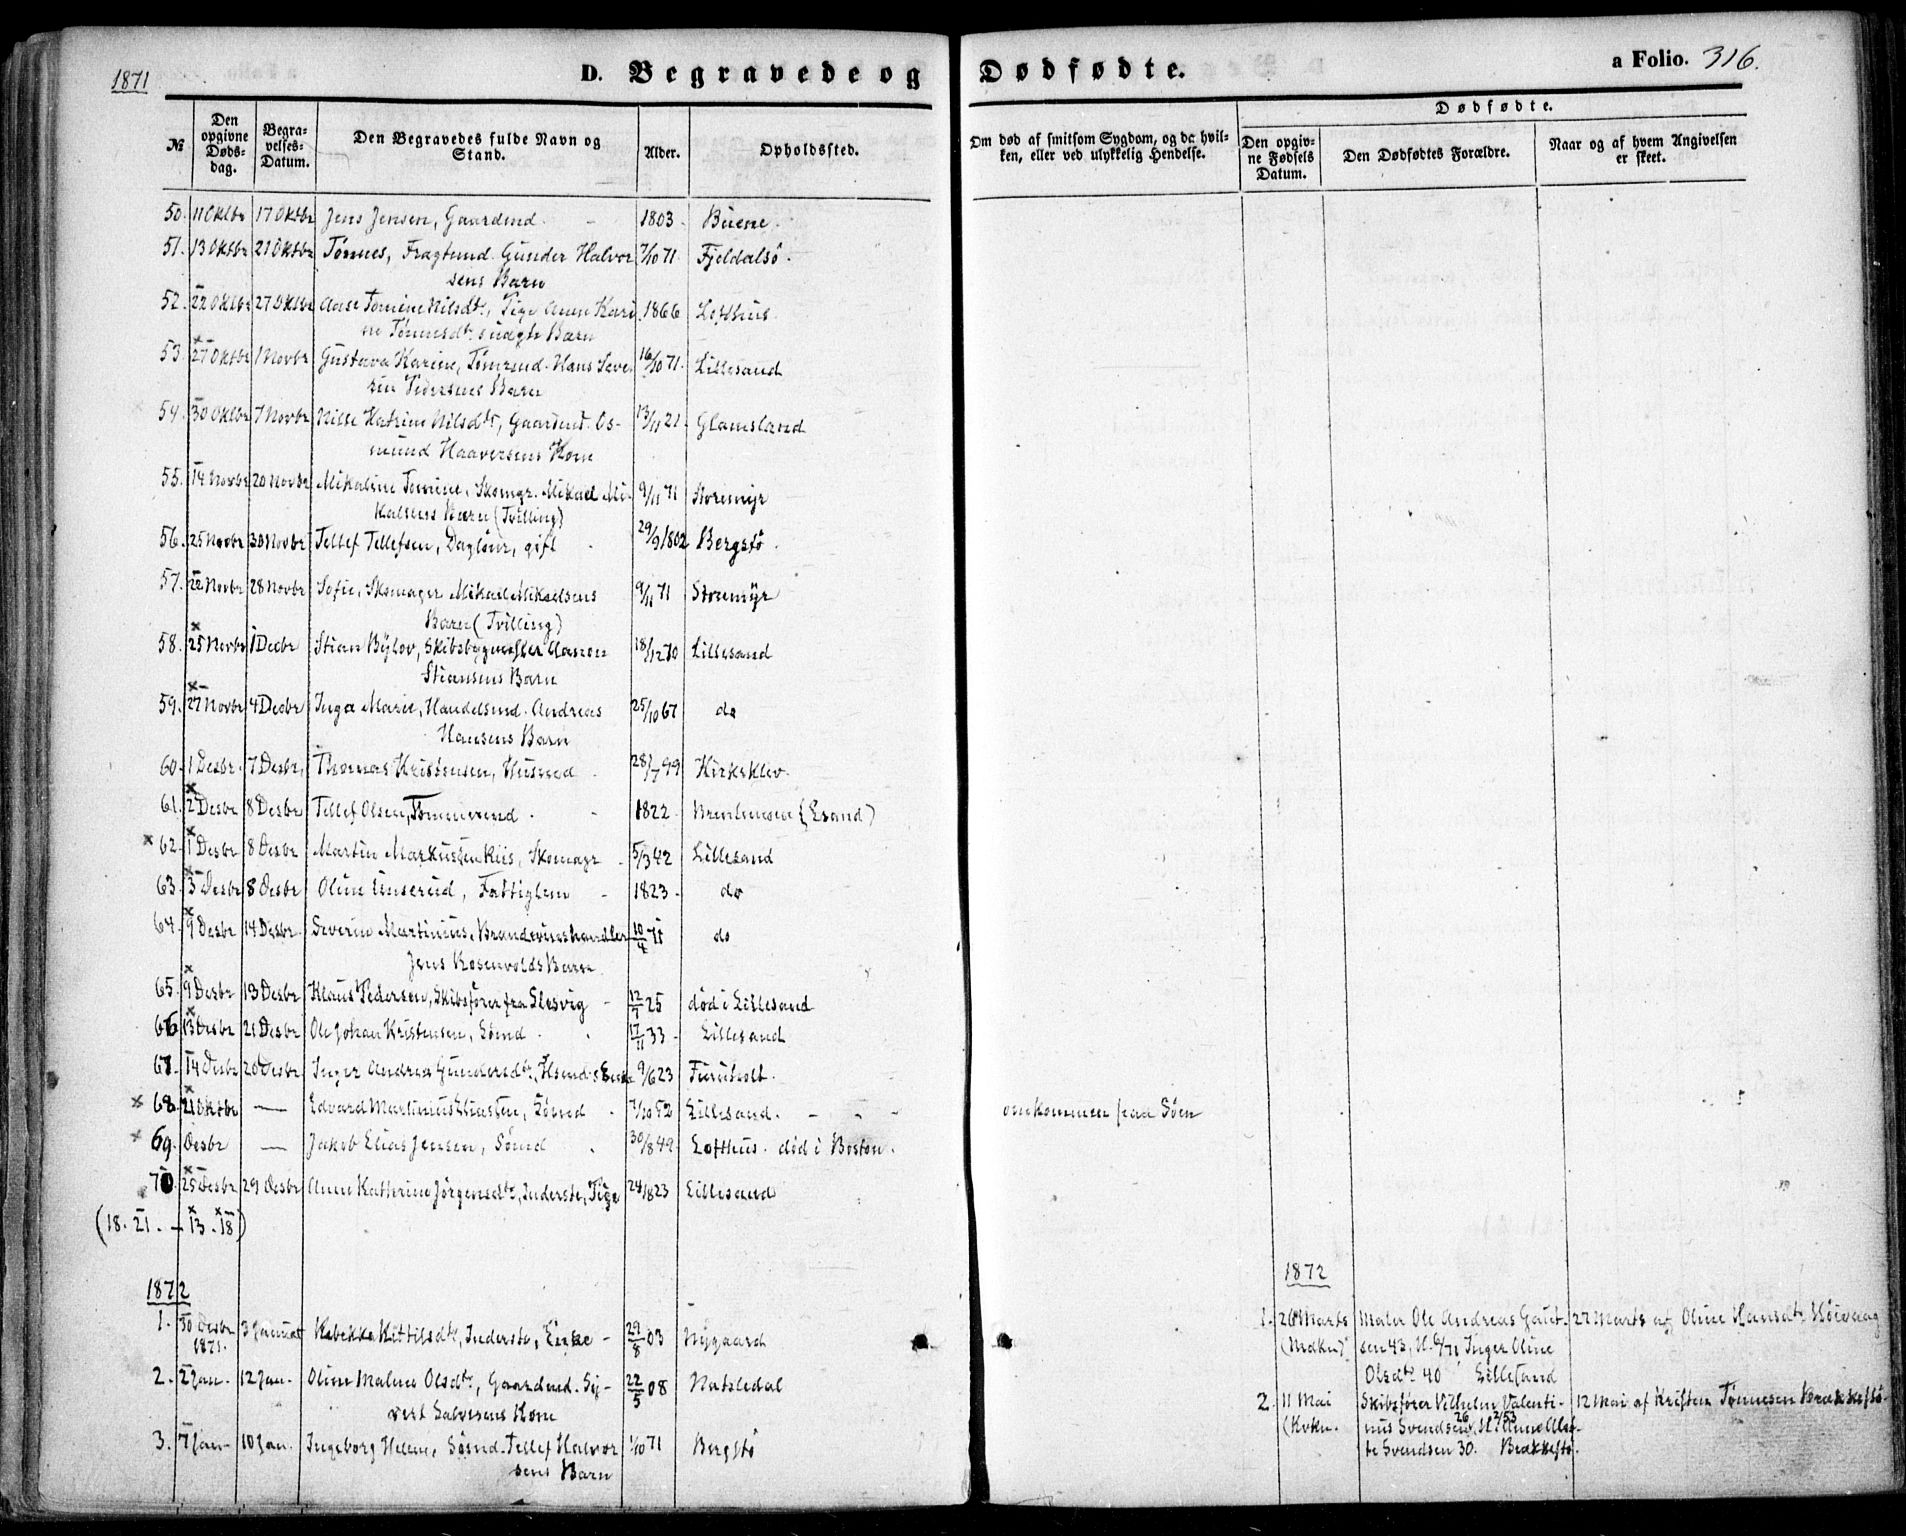 1871
D. Begravede og Dødfødte.
a Folio. 316.
№
Den opgivne Døds-dag.
Begra-velses-Datum.
Den Begravedes fulde Navn og Stand.
Alder.
Opholdssted.
Om død af smitsom Sygdom, og da hvil-ken, eller ved ulykkelig Hendelse.
Dødfødte.
Den opgiv-ne Fødsels Datum.
Den Dødfødtes Forældre.
Naar og af hvem Angivelsen er skeet.
50. 11 Oktbr 17 Oktbr Jens Jensen, Gaardmd. 1803. Buene.
51. 13 Oktbr 21 Oktbr Tønnes, Fragtmd. Gunder Halvor 7/10 71. Fjeldalsö.
sens Barn
52. 22 Oktbr 27 Oktbr Aase Tomine Nilsdtr, Pige Anne Kari 1866 Lofthus.
ne Tønnesdtr. uægte Barn
53. 27 Oktbr 1 Novbr Gustava Karine, Tømrmd. Hans Seve 16/10 71. Lillesand
rin Pedersens Barn
54. 30 Oktbr 7 Novbr Nille Katrine Nilsdtr, Gaardmd. Os- 13/11 21. Glamsland
mund Haaversens Kone
55. 14 Novbr 20 Novbr Mikaline Tomine, Skomgr. Mikael Mi- 9/11 71 Storemyr
kalsens Barn (Tvilling)
56. 25 Novbr 30 Novbr Tellef Tellefsen, Daglønr, gift 29/9 1802 Bergstö.
57. 22 Novbr 28 Novbr Sofie, Skomager Mikael Mikaelsens 9/11 71 Storemÿr
Barn (Tvilling)
58. 25 Novbr 1 Decbr Stian Bÿlov, Skibsbygmester Aanon 18/12 70 Lillesand
Stiansens Barn
59. 27 Novbr 4 Desbr Inga Marie, Handelsmd. Andreas 25/10 67 do
Hansens Barn
60. 1 Desbr. 7 Desbr, Thomas Kristensen, Husmd 28/7 99 Kirkeklev.
61. 2 Desbr 8 Desbr Tellef Olsen, Tømmermd. 1822. (Lsand)
× 62. 1 Desbr 8 Desbr Martin Markussen Riis, Skomagr 5/3 42 Lillesand
63. 3 Desbr 8 Desbr Oline Fattiglem 1823. do
64. 9 Desbr 14 Desbr. Severin Martinius, Brændevinshandler 10/4 71 do
Jens Rosenvolds Barn
65. 9 Desbr 13 Desbr Klaus Pedersen, Skibsfører fra Slesvig 25 død i Lillesand
66 13 Desbr 21 Desbr Ole Johan Kristensen, Sömd. 17/11 33. Lillesand
67. 14 Desbr 20 Desbr Inger Andrea Gundersdtr, Hsmd.s Enke 9/6 23 Furuholt.
× 68. 21 Oktbr — Edvard Martinius Eliassen, Sömd. 7/10 52 Lillesand. omkommen paa Söen
× 69. Desbr — Jakob Elias Jensen, Sömd. 30/8 49. Lofthus. död i Boston.
70 25 Desbr 29 Desbr Anne Kathrine Jörgensdtr, Inderste, Pige 24/1 823 Lillesand
(18. 21. — 13. 18)
1872
1. 30 Desbr 1871. 3 Januar Rebekka Kittilsdtr, Inderste, Enke 29/8 03 Nygaard
2. 2 Jan. 12 Jan. Oline Maline Olsdtr, Gaardmd. Sy- 22/5 08 Natsledal
vert Salvesens Kone
3. 7 Jan 10 Jan. Ingeborg Helene, Sömd. Tellef Halvor 1/10 71 Bergstö
sens Barn
1872
1. 26 Marts Maler Ole Andreas Gaut- 27 Marts af Oline Hansdtr Höivaag
sen 43, Inger Oline
Olsdtr 40 Lillesand
2. 11 Mai Skibsfører Vilhelm Valenti- 12 Mai af Kristen Tønnesen Brækkestö.
nus Svendsen 26,
te Svendsen 30. Brækkestö.